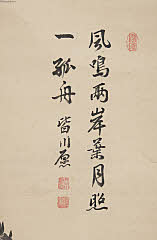 風鳴両岸葉月照
一孤舟
皆川愿